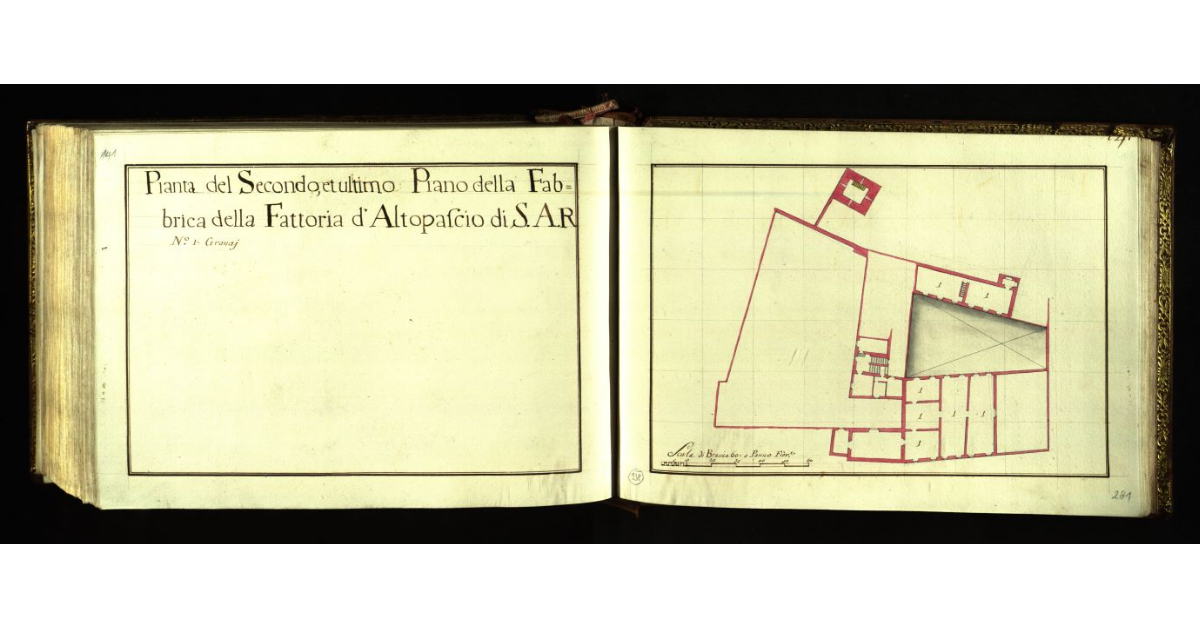 141
Pianta del Secondo, et ultimo Piano della Fab=
brica della Fattoria d'Altopascio di S.A.R
N.º 1. Granaj
1
1
1
1
1
1
1
Scala di Braccia 60 a Panno Fior.ⁿᵉ
281